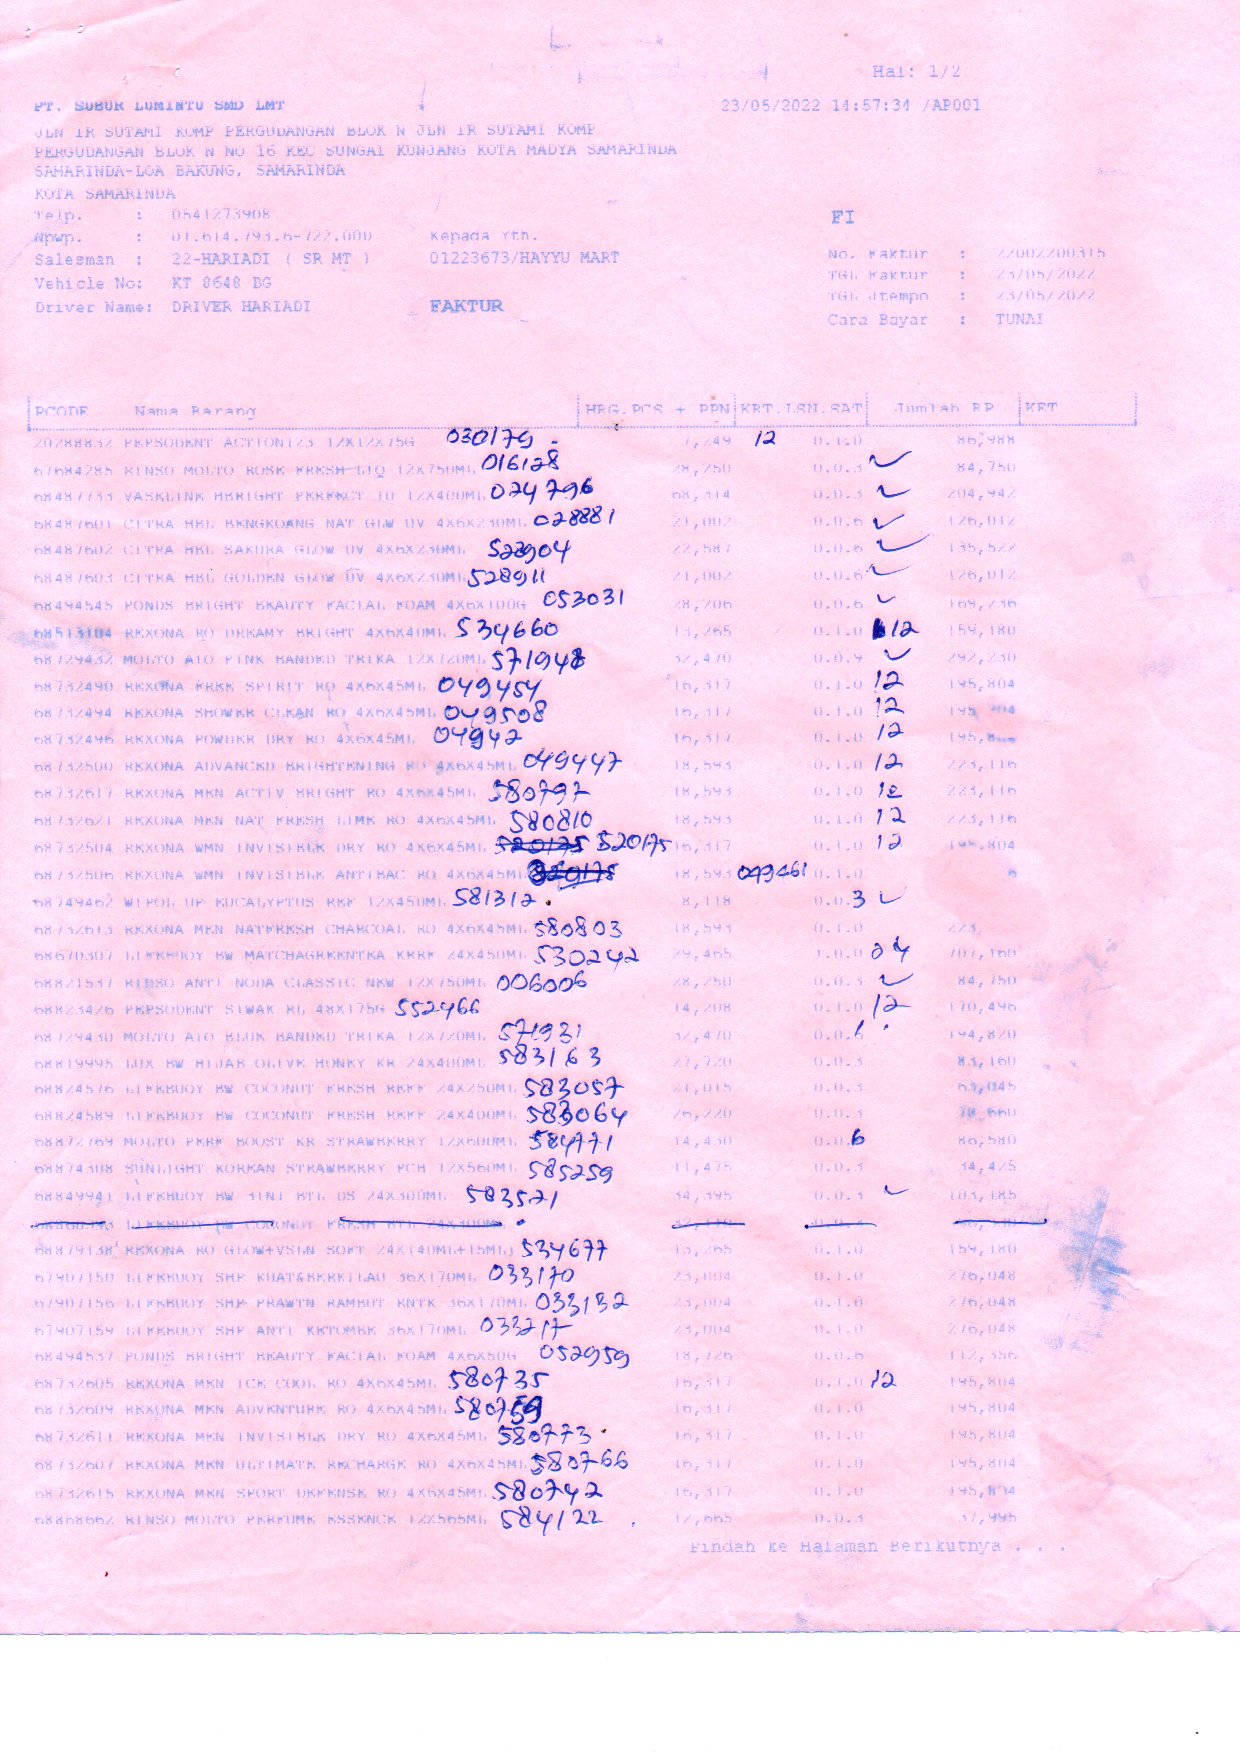 Hal: 1/2
PT. SUBUR LUMINTU SMD LMT 23/05/2022 14:57:34 /AP001
JLN IR SUTAMI KOMP PERGUDANGAN BLOK N JLN IR SUTAMI KOMP
PERGUDANGAN BLOK N NO 16 KEC SUNGAI KUNJANG KOTA MADYA SAMARINDA
SAMARINDA-LOA BAKUNG, SAMARINDA
KOTA SAMARINDA
Telp. : 0541273908 FI
Npwp. : 01.614.793.6-722.000 Kepada Yth.
Salesman : 22-HARIADI ( SR MT ) 01223673/HAYYU MART No. Faktur : 22002200315
Vehicle No: KT 8648 BG Tgl Faktur : 23/05/2022
Driver Name: DRIVER HARIADI FAKTUR Tgl Jtempo : 23/05/2022
Cara Bayar : TUNAI
PCODE Nama Barang HRG.PCS + PPN KRT.LSN.SAT Jumlah RP KET
20288832 PEPSODENT ACTION123 12X12X75G 030179 7,249 12 0.1.0 86,988
67684285 RINSO MOLTO ROSE FRESH LIQ 12X750ML 016128 28,250 0.0.3 84,750
68487733 VASELINE HBRIGHT PERFECT 10 12X400ML 024796 68,314 0.0.3 204,942
68487601 CITRA HBL BENGKOANG NAT GLW UV 4X6X230ML 028881 21,002 0.0.6 126,012
68487602 CITRA HBL SAKURA GLOW UV 4X6X230ML 528904 22,587 0.0.6 135,522
68487603 CITRA HBL GOLDEN GLOW UV 4X6X230ML 528911 21,002 0.0.6 126,012
68494545 PONDS BRIGHT BEAUTY FACIAL FOAM 4X6X100G 053031 28,206 0.0.6 169,236
68513104 REXONA RO DREAMY BRIGHT 4X6X40ML 534660 13,265 0.1.0 12 159,180
68729432 MOLTO AIO PINK HANDED TRIKA 12X720ML 571948 32,470 0.0.9 292,230
68732490 REXONA FREE SPIRIT RO 4X6X45ML 049454 16,317 0.1.0 12 195,804
68732494 REXONA SHOWER CLEAN RO 4X6X45ML 049508 16,317 0.1.0 12 195,804
68732496 REXONA POWDER DRY RO 4X6X45ML 04942 16,317 0.1.0 12
68732500 REXONA ADVANCED BRIGHTENING RO 4X6X45ML 049447 18,593 0.1.0 12 223,116
68732617 REXONA MEN ACTIV BRIGHT RO 4X6X45ML 580797 18,593 0.1.0 12 223,116
68732621 REXONA MEN NAT FRESH LIME RO 4X6X45ML 580810 18,593 0.1.0 12 223,116
68732504 REXONA WMN INVISIBLE DRY RO 4X6X45ML 520175 520175 16,317 0.1.0 12 195,804
68732506 REXONA WMN INVISIBLE ANTIBAC RO 4X6X45ML 18,593 049461 0.1.0
68749462 WIPOL UP EUCALYPTUS REF 12X450ML 581312 8,118 0.0.3
68732613 REXONA MEN NATFRESH CHARCOAL RO 4X6X45ML 580803 18,593 0.1.0 223,
68670307 LIFEBUOY BW MATCHAGREENTEA REFF 24X450ML 530242 29,465 1.0.0 24 707,160
68821537 RINSO ANTI NODA CLASSIC NEW 12X750ML 006006 28,250 0.0.3 84,750
68823426 PEPSODENT SIWAK RL 48X175G 552466 14,208 0.1.0 12 170,496
68729430 MOLTO AIO BLUE HANDED TRIKA 12X720ML 571931 32,470 0.0.6 194,820
68819995 LUX BW HIJAB OLIVE HONEY KR 24X400ML 583163 27,720 0.0.3 83,160
68824576 LIFEBUOY BW COCONUT FRESH REFF 24X250ML 583057 21,015 0.0.3 63,045
68824589 LIFEBUOY BW COCONUT FRESH REFF 24X400ML 583064 26,220 0.0.3 78,660
68872769 MOLTO PERF BOOST KR STRAWBERRY 12X600ML 584771 14,430 0.0.6 86,580
68874308 SUNLIGHT KOREAN STRAWBERRY PCH 12X560ML 585259 11,475 0.0.3 34,425
68849941 LIFEBUOY BW 3IN1 BTL DS 24X300ML 583521 34,395 0.0.3 103,185
LIFEBUOY BW COCONUT FRESH BTL 24X300ML 0.0.3
68879138 REXONA RO GLOW+VSLN SOFT 24X(40ML+15ML) 534677 13,265 0.1.0 159,180
67907150 LIFEBUOY SHP KUAT&BERKILAU 36X170ML 033170 23,004 0.1.0 276,048
67907156 LIFEBUOY SHP PRAWTN RAMBUT RNTK 36X170ML 033132 23,004 0.1.0 276,048
67907159 LIFEBUOY SHP ANTI KETOMBE 36X170ML 033217 23,004 0.1.0 276,048
68494537 PONDS BRIGHT BEAUTY FACIAL FOAM 4X6X50G 052959 18,726 0.0.6 112,356
68732605 REXONA MEN ICE COOL RO 4X6X45ML 580735 16,317 0.1.0 12 195,804
68732609 REXONA MEN ADVENTURE RO 4X6X45ML 580759 16,317 0.1.0 195,804
68732611 REXONA MEN INVISIBLE DRY RO 4X6X45ML 580773 16,317 0.1.0 195,804
68732607 REXONA MEN ULTIMATE RECHARGE RO 4X6X45ML 580766 16,317 0.1.0 195,804
68732615 REXONA MEN SPORT DEFENSE RO 4X6X45ML 580742 16,317 0.1.0 195,804
68868662 RINSO MOLTO PERFUME ESSENCE 12X565ML 584122 12,665 0.0.3 37,995
Pindah ke Halaman Berikutnya . . .